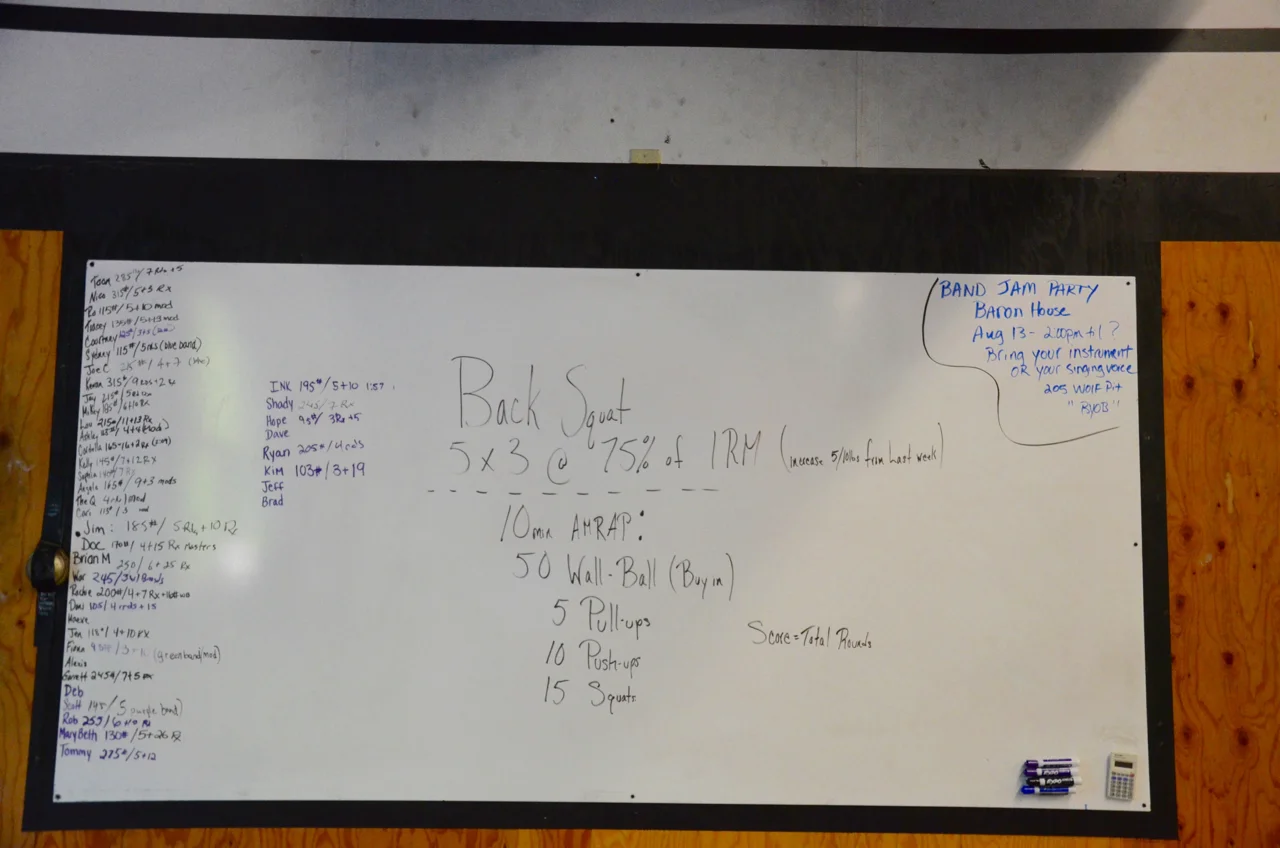 Nico 315#/5+3 Rx
115#/5+10 mod
Tracey 135#/5+13 mod
Courtney
Sydney 115#/5rds (blue band)
Joe C
315#/9rds+2
Jay 215#
Mikey 185#
215#/11+13 Rx
Ashley
Kelly 145#/7+12 Rx
Sophia
Angela 165#/9+3 mods
The Q 4rds/mod
Cari 115#/
Jim: 185#/5Rds+10
Doc 170#/4+15 Rx Masters
Brian M 250/6+25 Rx
245/
Richie 200#/4+7 Rx+
105/4rds+15
Jen 115#/4+10 RX
(green band/mod)
Alexis
Garrett 245#/7+5
Deb
Scott
Rob 255/6+10 Rx
MaryBeth 130#/5+26 Rx
Tommy 275#/5+12
INK 195#/5+10 1:57
Shady 245/7 Rx
Hope 95#/3Rd+5
Dave
Ryan 205#/4rds
Kim 103#/3+19
Jeff
Brad
Back Squat
5x3 @ 75% of 1RM (increase 5/10lbs from Last week)
10 min AMRAP:
50 Wall-Ball (Buy in)
5 Pull-ups
10 Push-ups
15 Squats
Score=Total Rounds
BAND JAM PARTY
Baron House
Aug 13 - 2:00pm til ?
Bring your instrument
OR your singing voice
205 Wolf Pit
"BYOB"